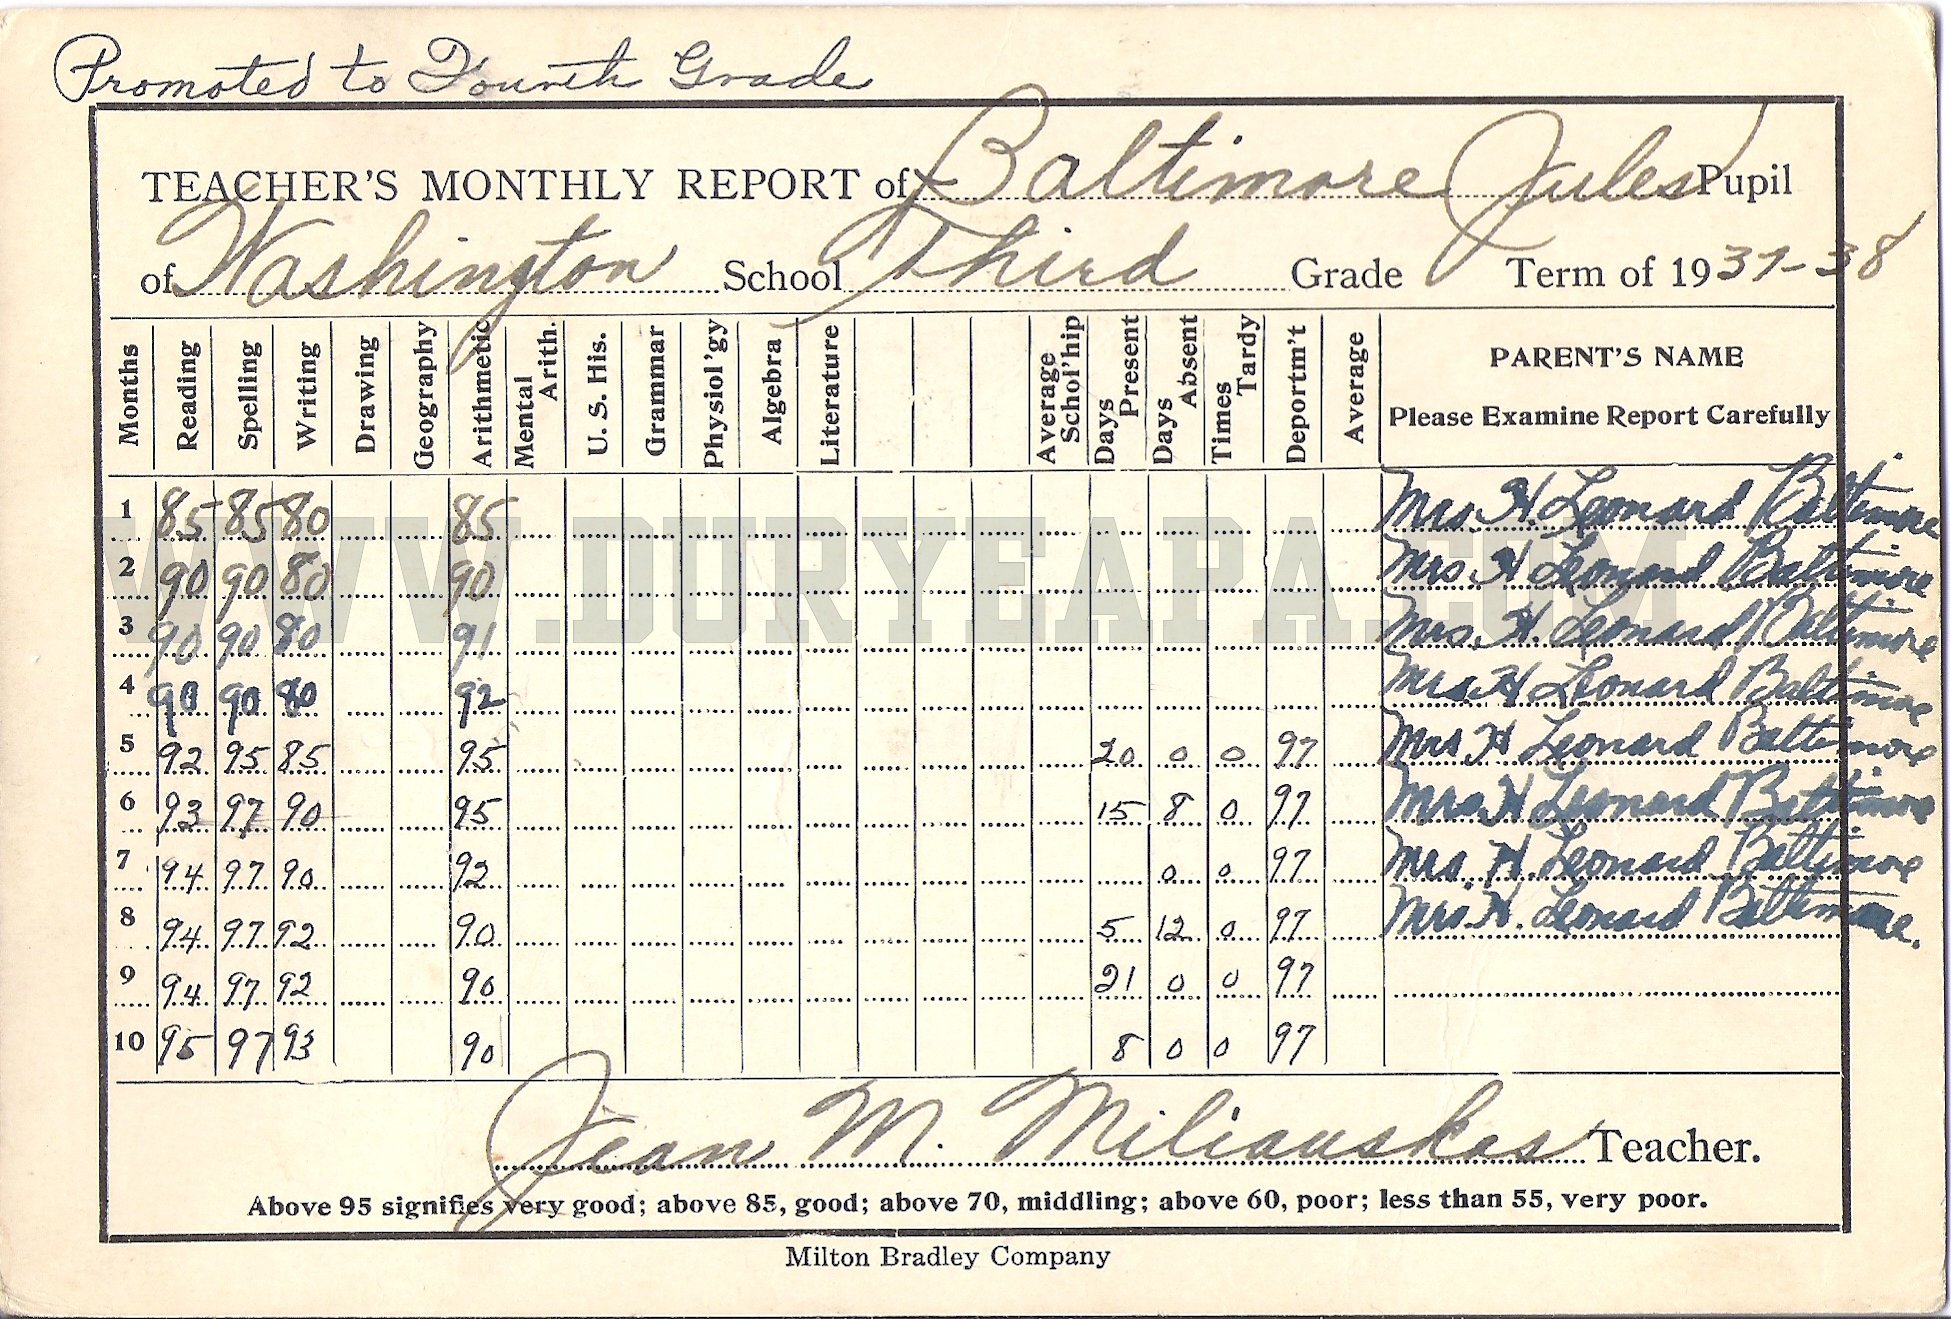 Promoted to Fourth Grade
TEACHER'S MONTHLY REPORT of Baltimore Jules Pupil
of Washington School Third Grade Term of 1937-38
Months Reading Spelling Writing Drawing Geography Arithmetic Mental Arith. U. S. His. Grammar Physiol'gy Algebra Literature Average Schol'hip Days Present Days Absent Times Tardy Deportm't Average PARENT'S NAME
Please Examine Report Carefully
1 85 85 80 85 Mrs. H. Leonard Baltimore
2 90 90 80 90 Mrs H Leonard Baltimore
3 90 90 80 91 Mrs. H. Leonard Baltimore
4 90 90 80 92 Mrs. H Leonard Baltimore
5 92 95 85 95 20 0 0 97 Mrs H Leonard Baltimore
6 93 97 90 95 15 8 0 97 Mrs. H Leonard Baltimore
7 94 97 90 92 0 0 97 Mrs. H. Leonard Baltimore
8 94 97 92 90 5 12 0 97 Mrs. H. Leonard Baltimore.
9 94 97 92 90 21 0 0 97
10 95 97 93 90 8 0 0 97
WWW.DURYEAPA.COM
Jean M. Miliauskas Teacher.
Above 95 signifies very good; above 85, good; above 70, middling; above 60, poor; less than 55, very poor.
Milton Bradley Company